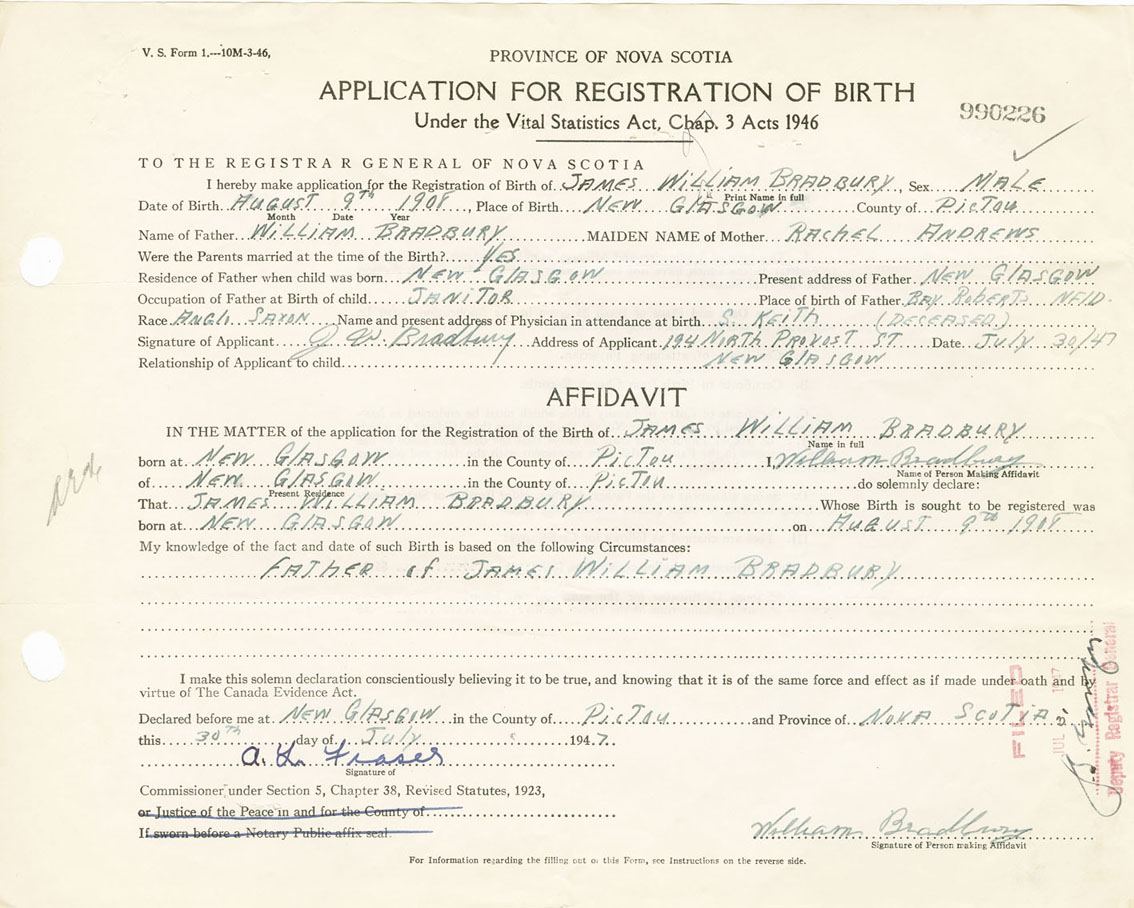 V. S. Form 1.---10M-3-46,
PROVINCE OF NOVA SCOTIA
APPLICATION FOR REGISTRATION OF BIRTH
990226
Under the Vital Statistics Act, Chap. 3 Acts 1946
TO THE REGISTRAR GENERAL OF NOVA SCOTIA
I hereby make application for the Registration of Birth of JAMES WILLIAM BRADBURY, Sex MALE
Print Name in full
Date of Birth AUGUST 9TH 1908, Place of Birth NEW GLASGOW County of PICTOU
Month Date Year
Name of Father WILLIAM BRADBURY MAIDEN NAME of Mother RACHEL ANDREWS
Were the Parents married at the time of the Birth? YES
Residence of Father when child was born NEW GLASGOW Present address of Father NEW GLASGOW
Occupation of Father at Birth of child JANITOR Place of birth of Father BAY ROBERTS NFLD.
Race ANGLO SAXON Name and present address of Physician in attendance at birth S. KEITH (DECEASED)
Signature of Applicant J. W. Bradbury Address of Applicant 194 NORTH PROVOST ST. Date JULY 30/47
Relationship of Applicant to child NEW GLASGOW
AFFIDAVIT
IN THE MATTER of the application for the Registration of the Birth of JAMES WILLIAM BRADBURY
Name in full
born at NEW GLASGOW in the County of PICTOU I, William Bradbury
Name of Person Making Affidavit
of NEW GLASGOW in the County of PICTOU do solemnly declare:
Present Residence
That JAMES WILLIAM BRADBURY Whose Birth is sought to be registered was
born at NEW GLASGOW on AUGUST 9TH 1908
My knowledge of the fact and date of such Birth is based on the following Circumstances:
FATHER of JAMES WILLIAM BRADBURY
I make this solemn declaration conscientiously believing it to be true, and knowing that it is of the same force and effect as if made under oath and by
virtue of The Canada Evidence Act.
Declared before me at NEW GLASGOW in the County of PICTOU and Province of NOVA SCOTIA
this 30TH day of JULY 1947.
A. L. Fraser
Signature of
Commissioner under Section 5, Chapter 38, Revised Statutes, 1923,
or Justice of the Peace in and for the County of
If sworn before a Notary Public affix seal
William Bradbury
Signature of Person making Affidavit
For Information regarding the filling out of this Form, see Instructions on the reverse side.
FILED
JUL 31 1947
Deputy Registrar General